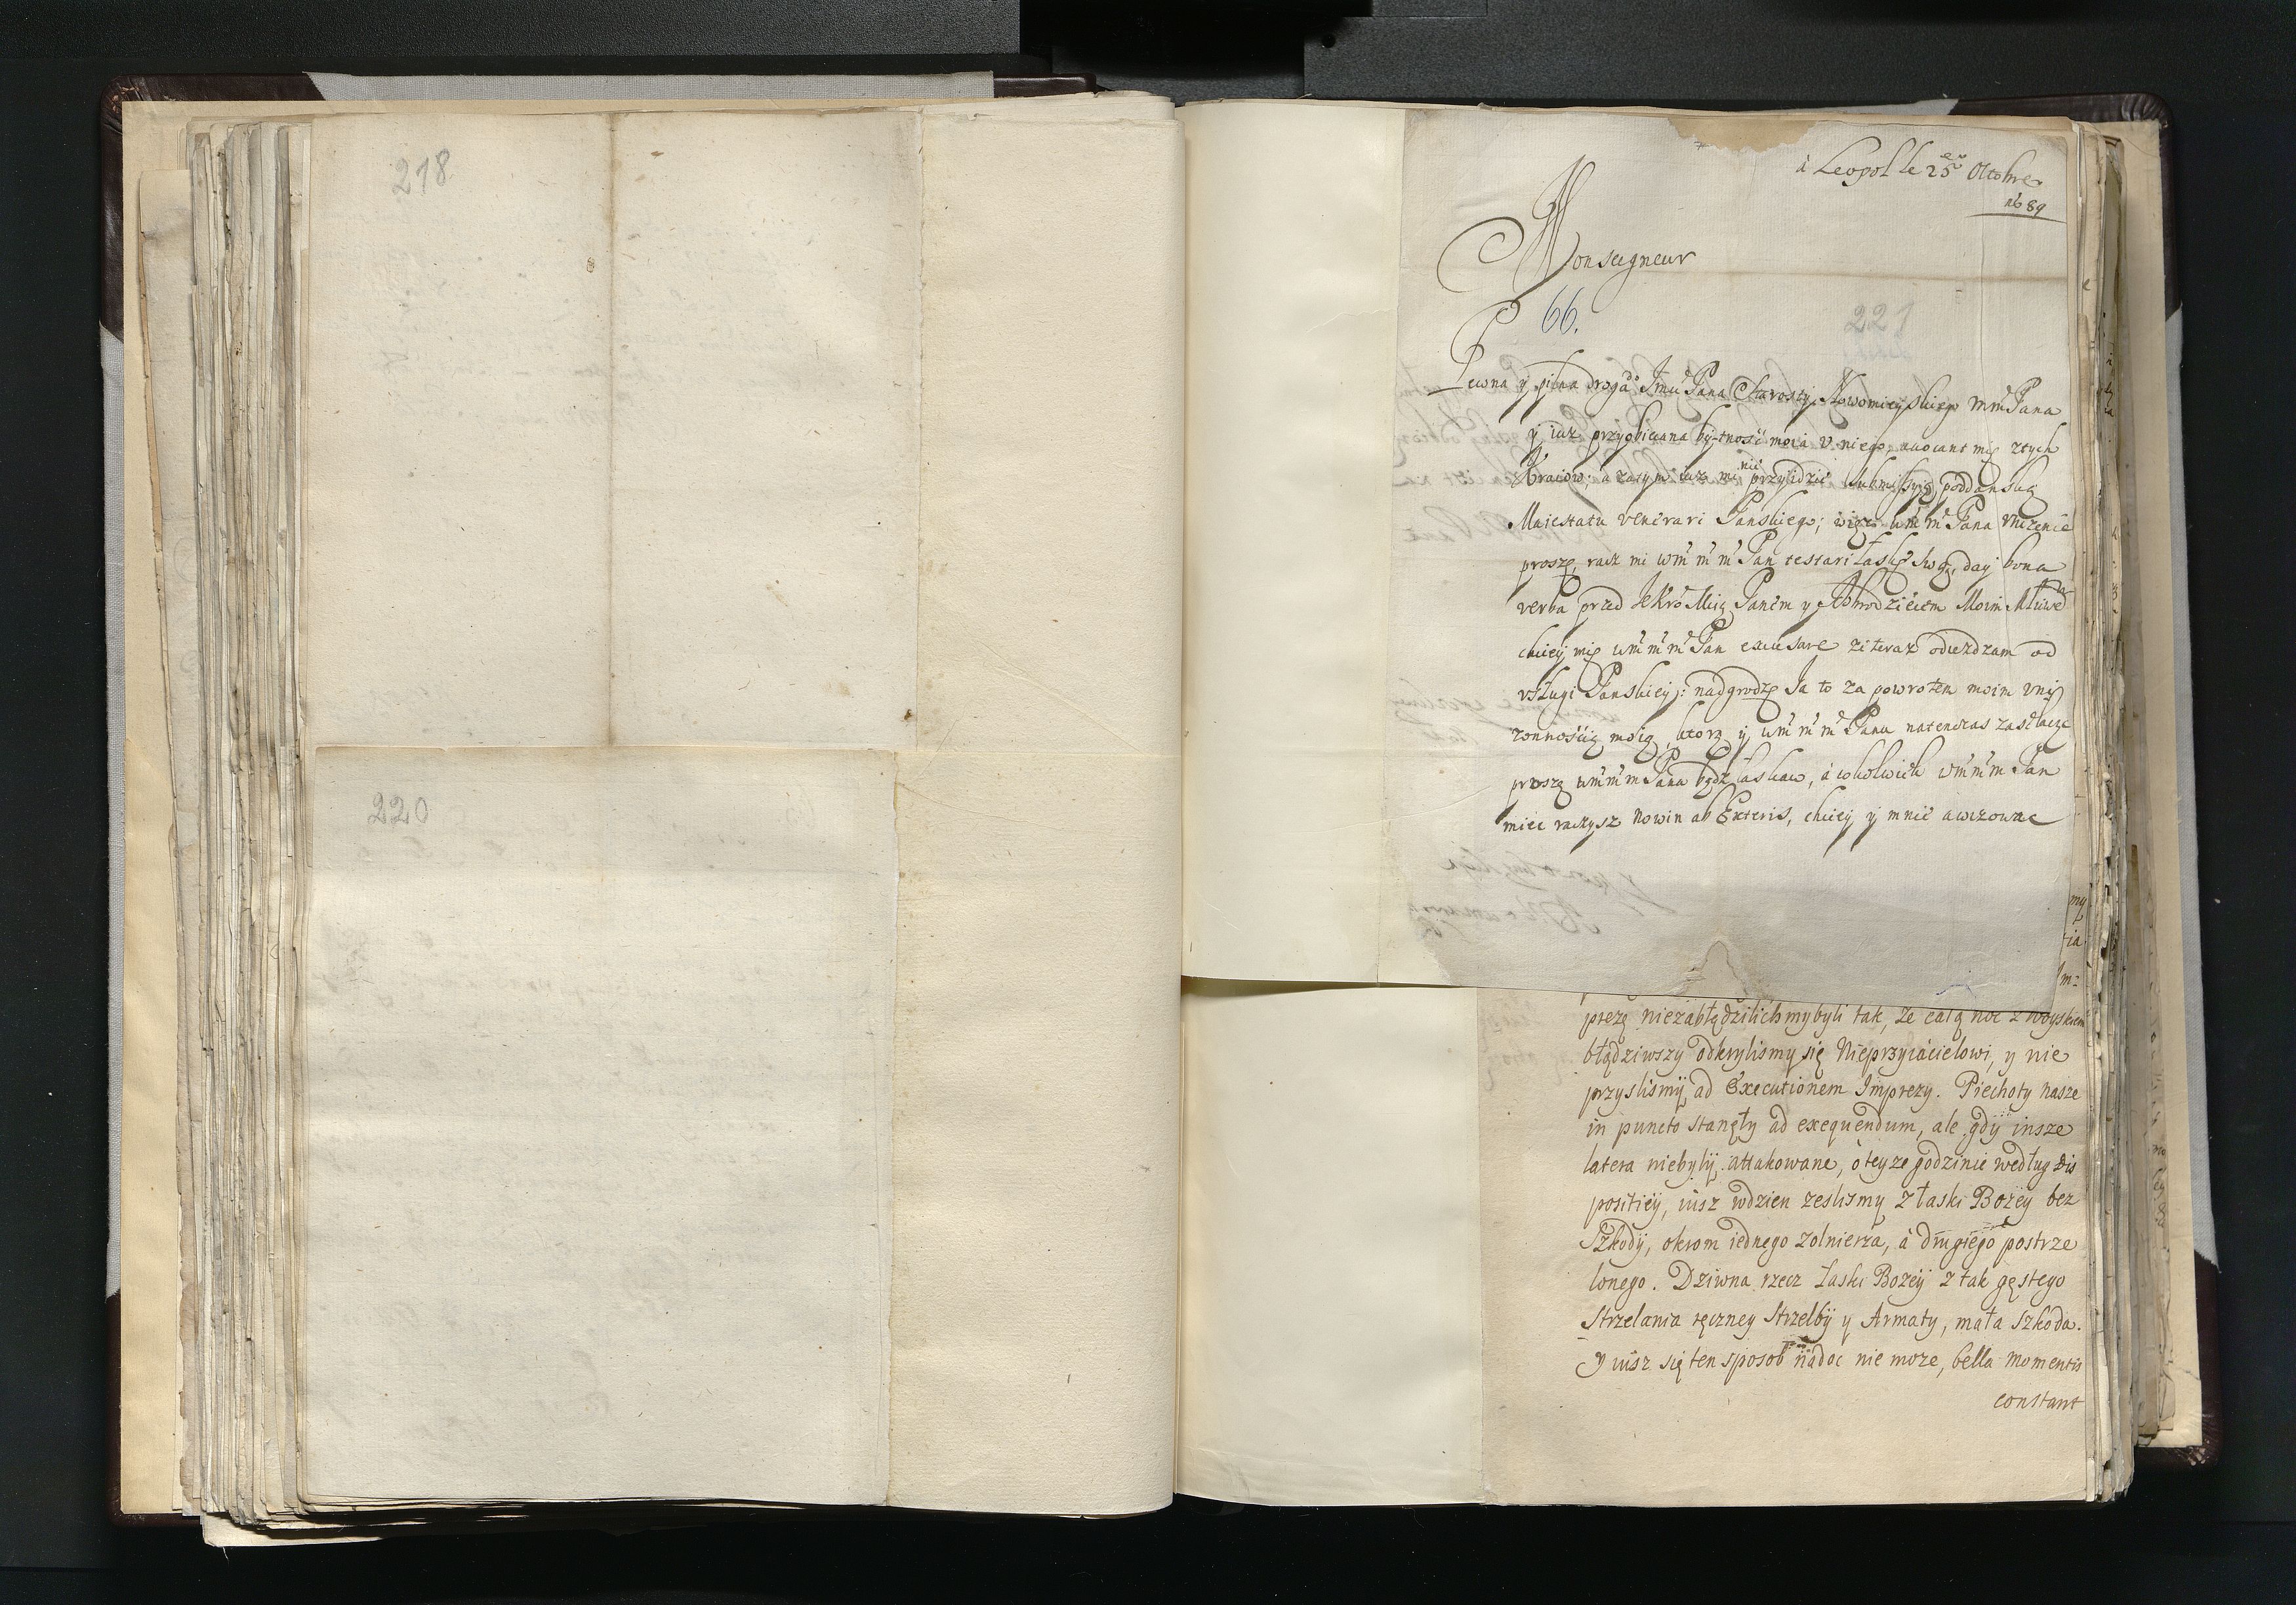 218
220
à Leopol le 25 Octobre
1689
Monseigneur
66.
221
Pewna y pilna droga do Jmci Pana Starosty Nowomieyskiego Pana
y iusz przyobiecana bytność moia v niego, auocant mię z tych
Kraiow; a zasym iusz mi nie przyidzie submissyą poddanską
Maiestatu venerari Panskiego; więc Pana vnizenie
proszę, racz mi Pan testari łaskę swą, day bona
verba przed Panem y Dobrodzieiem Moim
chciey mię Pan excusare ze teraz odiezdzam od
vsługi Panskiey: nadgrodzę Ja to za powrotem moim vni
zonnością moią, ktorą y Panu natenczas
proszę Pana bądz łaskaw, a cokolwiek Pan
miec raczysz nowin ab Exteris, chciey y mnie awizowac
my
tia
m:
prezę niezabłędzilichmy byli tak, że całą noc z woyskiem
błądziwszy odkrylismy się Nieprzyiacielowi, y nie
przyslismy ad Executionem Imprezy. Piechoty nasze
in puncto stanęły ad exequendum, ale gdy insze
latera niebyly attakowane, o teyze godzinie według dis
positiey, iusz wdzien zeslismy z łaski Bozey bez
Szkody, okrom iednego zolnierza, a drugiego postrze
lonego. Dziwna rzecz Łaski Bozey z tak gęstego
Strzelania ręczney Strzelby y Armaty, mała Szkoda.
Y iusz się ten sposob nadac nie moze, bella momentis
constant